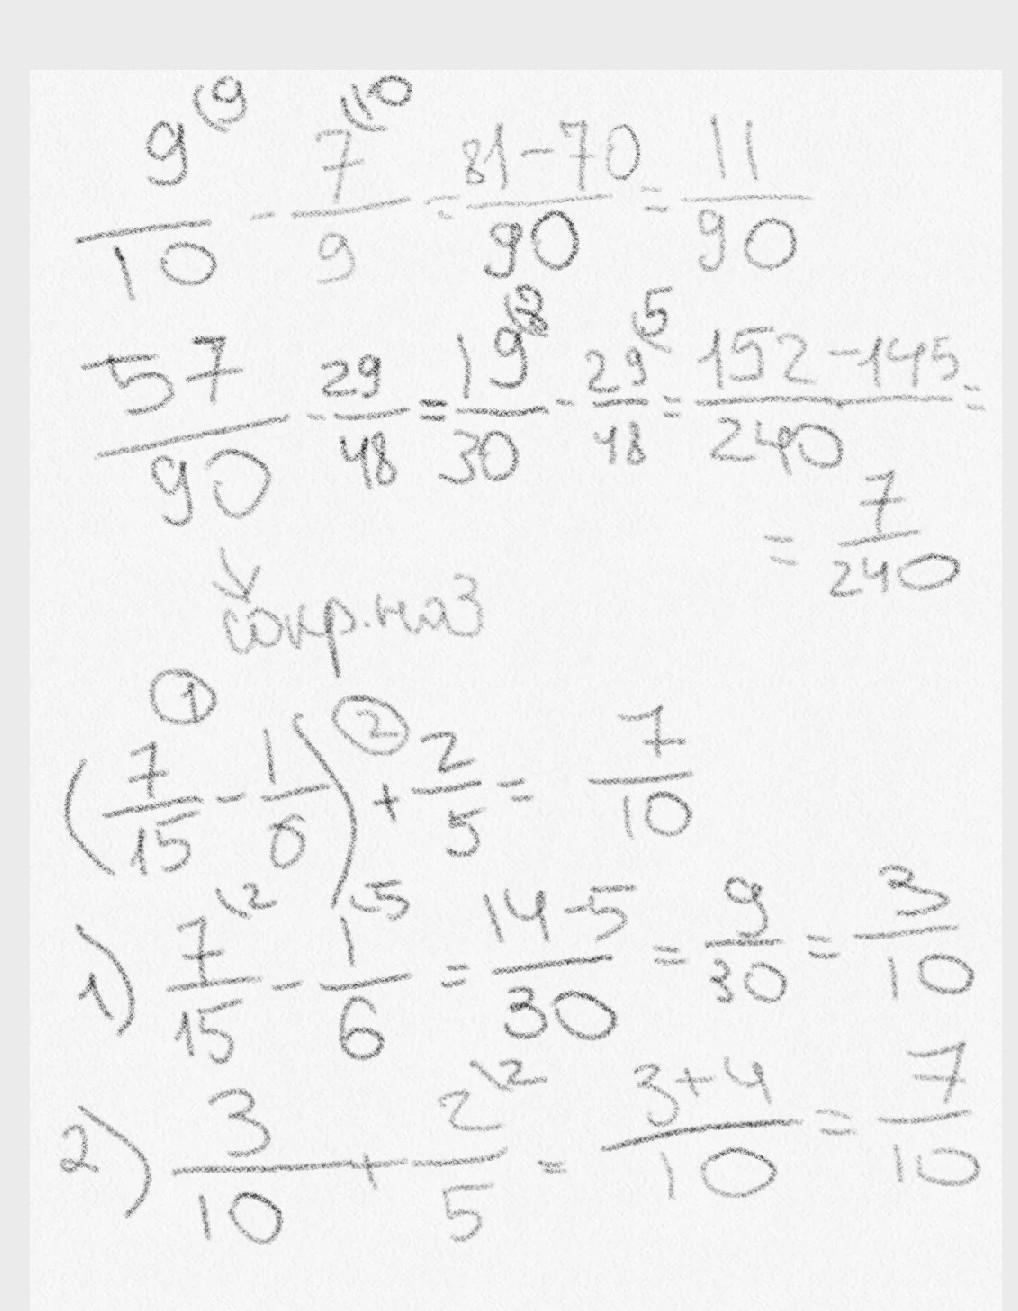 9/10 (9 - 7/9 (10 = 81-70/90 = 11/90
57/90 - 29/48 = 19/30 (8 - 29/48 (5 = 152-145/240 =
= 7/240
сокр. на 3
① ②
(7/15 - 1/6) + 2/5 = 7/10
1) 7/15 \2 - 1/6 \5 = 14-5/30 = 9/30 = 3/10
2) 3/10 + 2/5 \2 = 3+4/10 = 7/10